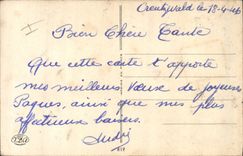 Creutzwald le 18-4-46
Bien Chère Tante
Que cette carte t'apporte
mes meilleurs Vœux de joyeuses
Paques, ainsi que mes plus
affectueux baisers.
André